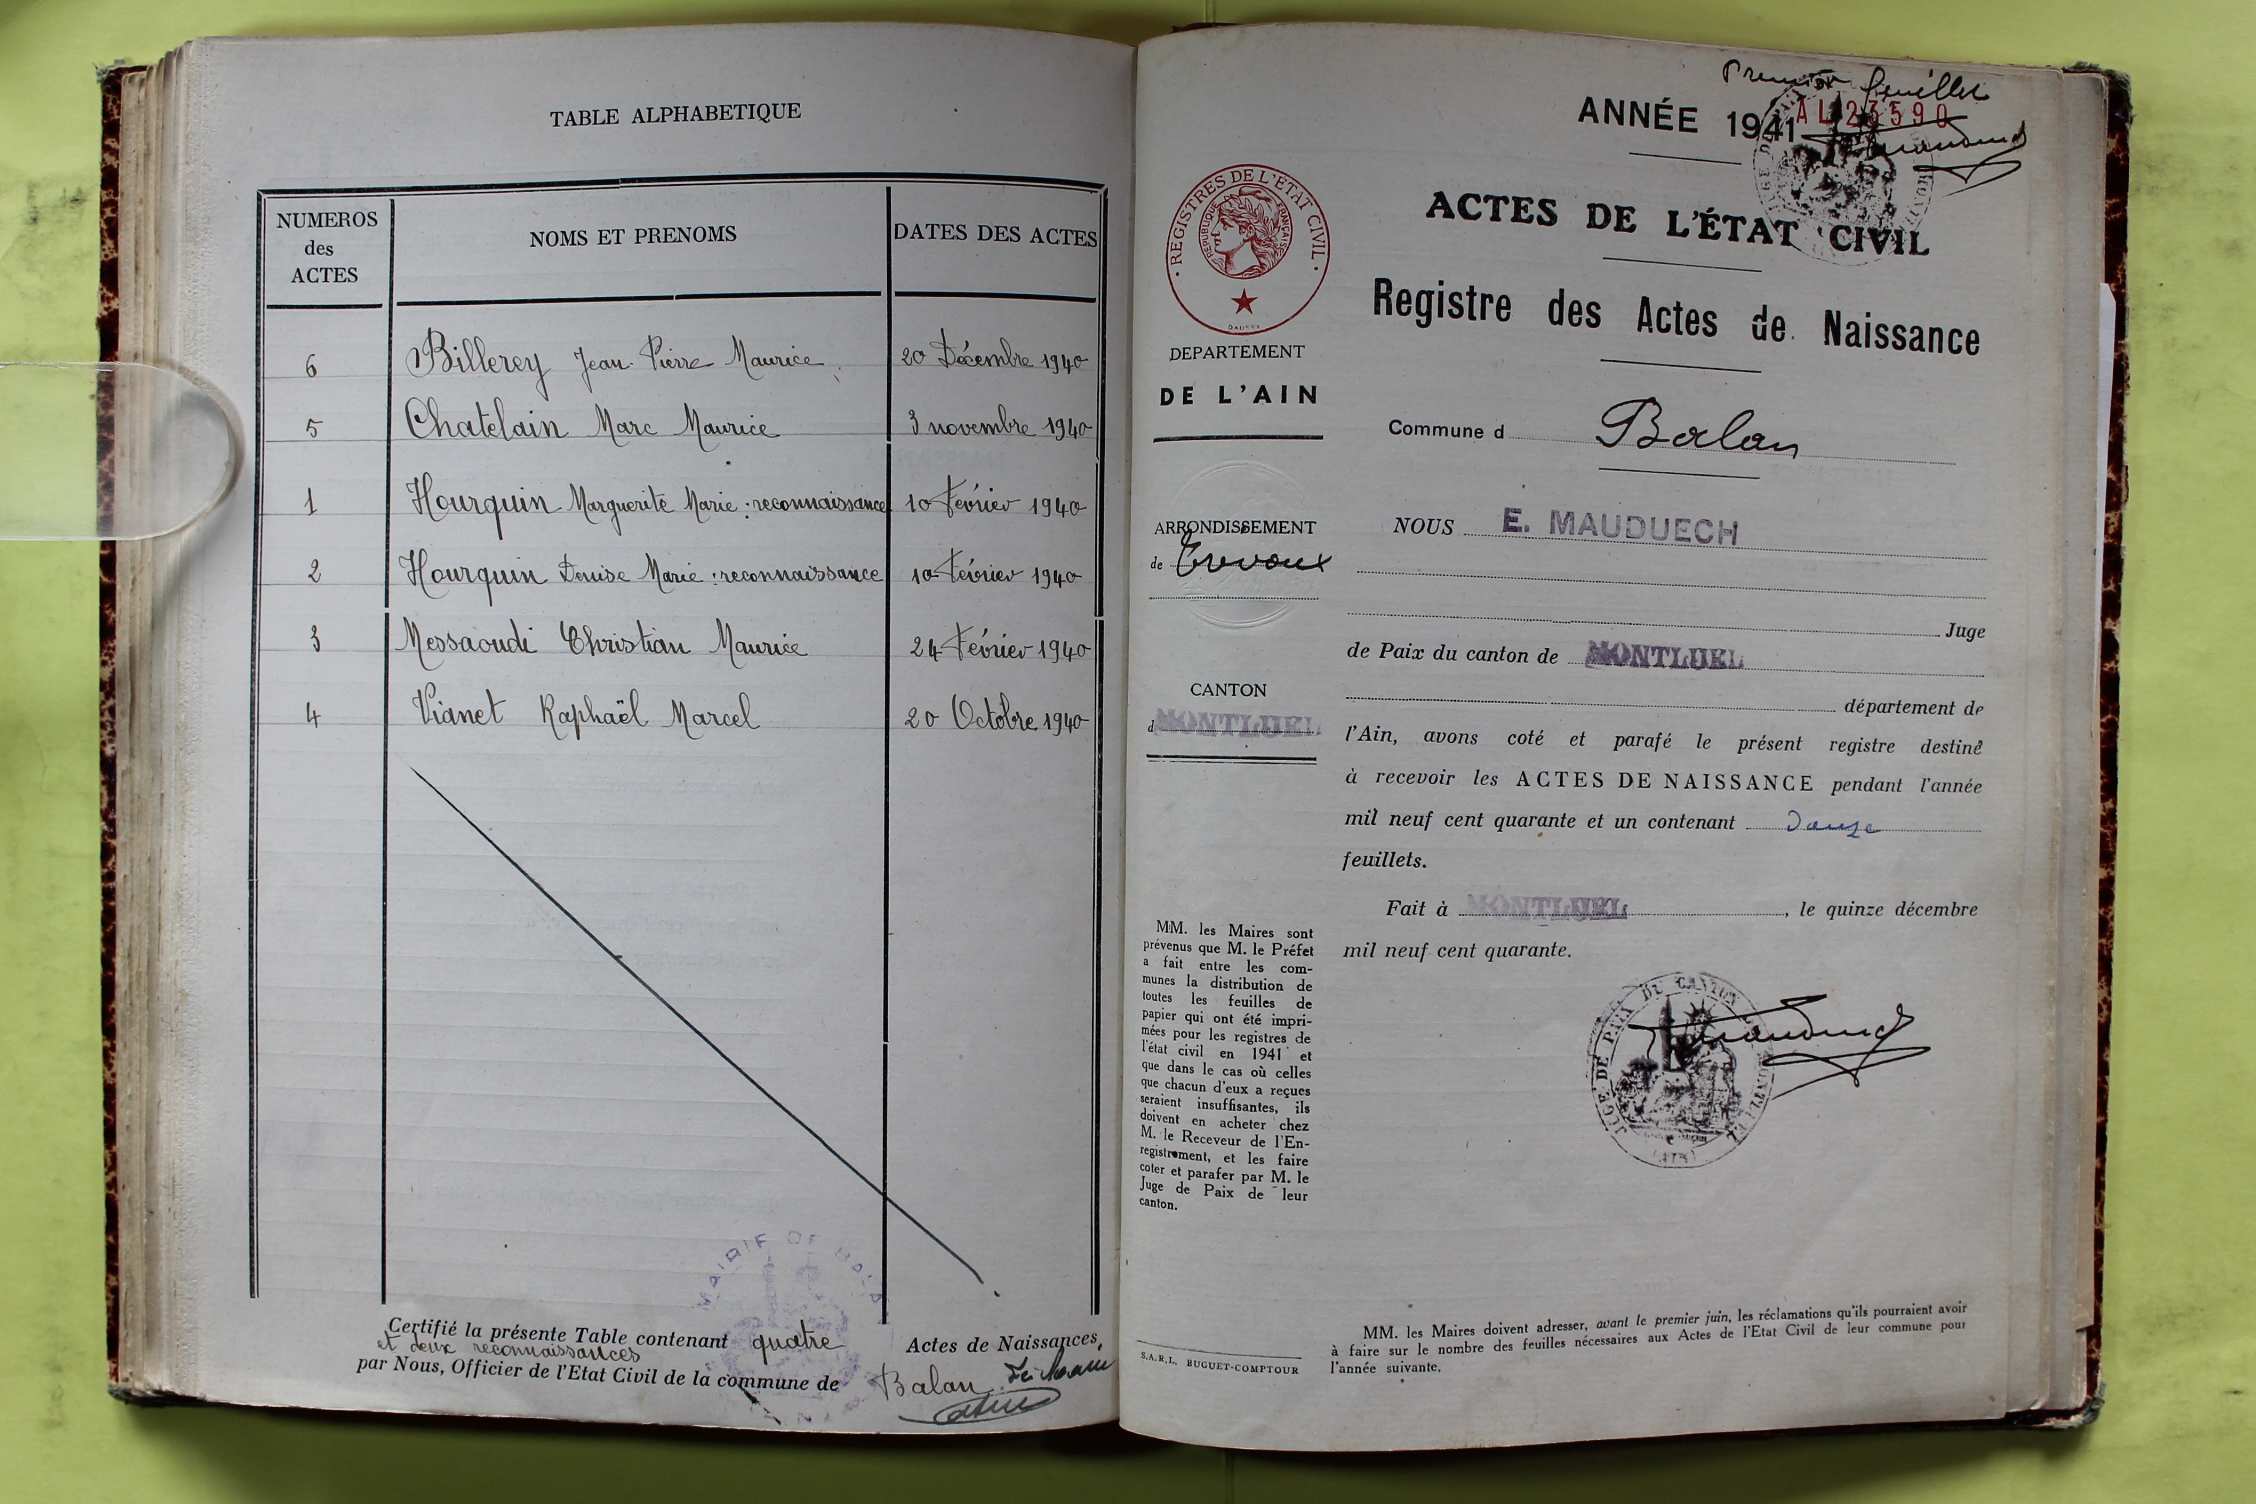 TABLE ALPHABETIQUE
NUMEROS
des
ACTES
NOMS ET PRENOMS
DATES DES ACTES
6 Billerey Jean Pierre Maurice 20 Décembre 1940
5 Chatelain Marc Maurice 3 novembre 1940
1 Hourquin Marguerite Marie : reconnaissance 10 Février 1940
2 Hourquin Denise Marie : reconnaissance 10 Février 1940
3 Messaoudi Christian Maurice 24 Février 1940
4 Vianet Raphaël Marcel 20 Octobre 1940
MAIRIE DE BALAN
Certifié la présente Table contenant quatre Actes de Naissances,
et deux reconnaissances
par Nous, Officier de l'Etat Civil de la commune de Balan
Premier feuillet
ANNÉE 1941
AL 23590
ACTES DE L'ÉTAT CIVIL
Registre des Actes de Naissance
REGISTRES DE L'ÉTAT CIVIL
REPUBLIQUE FRANÇAISE
DEPARTEMENT
DE L'AIN
Commune d Balan
ARRONDISSEMENT
de Trevoux
CANTON
d MONTLUEL
NOUS E. MAUDUECH
Juge
de Paix du canton de MONTLUEL
département de
l'Ain, avons coté et parafé le présent registre destiné
à recevoir les ACTES DE NAISSANCE pendant l'année
mil neuf cent quarante et un contenant douze
feuillets.
Fait à MONTLUEL, le quinze décembre
mil neuf cent quarante.
JUGE DE PAIX DU CANTON MONTLUEL
(AIN)
MM. les Maires sont
prévenus que M. le Préfet
a fait entre les com-
munes la distribution de
toutes les feuilles de
papier qui ont été impri-
mées pour les registres de
l'état civil en 1941 et
que dans le cas où celles
que chacun d'eux a reçues
seraient insuffisantes, ils
doivent en acheter chez
M. le Receveur de l'En-
registrement, et les faire
coter et parafer par M. le
Juge de Paix de leur
canton.
S.A.R.L. BUGUET-COMPTOUR
MM. les Maires doivent adresser, avant le premier juin, les réclamations qu'ils pourraient avoir
à faire sur le nombre des feuilles nécessaires aux Actes de l'Etat Civil de leur commune pour
l'année suivante.